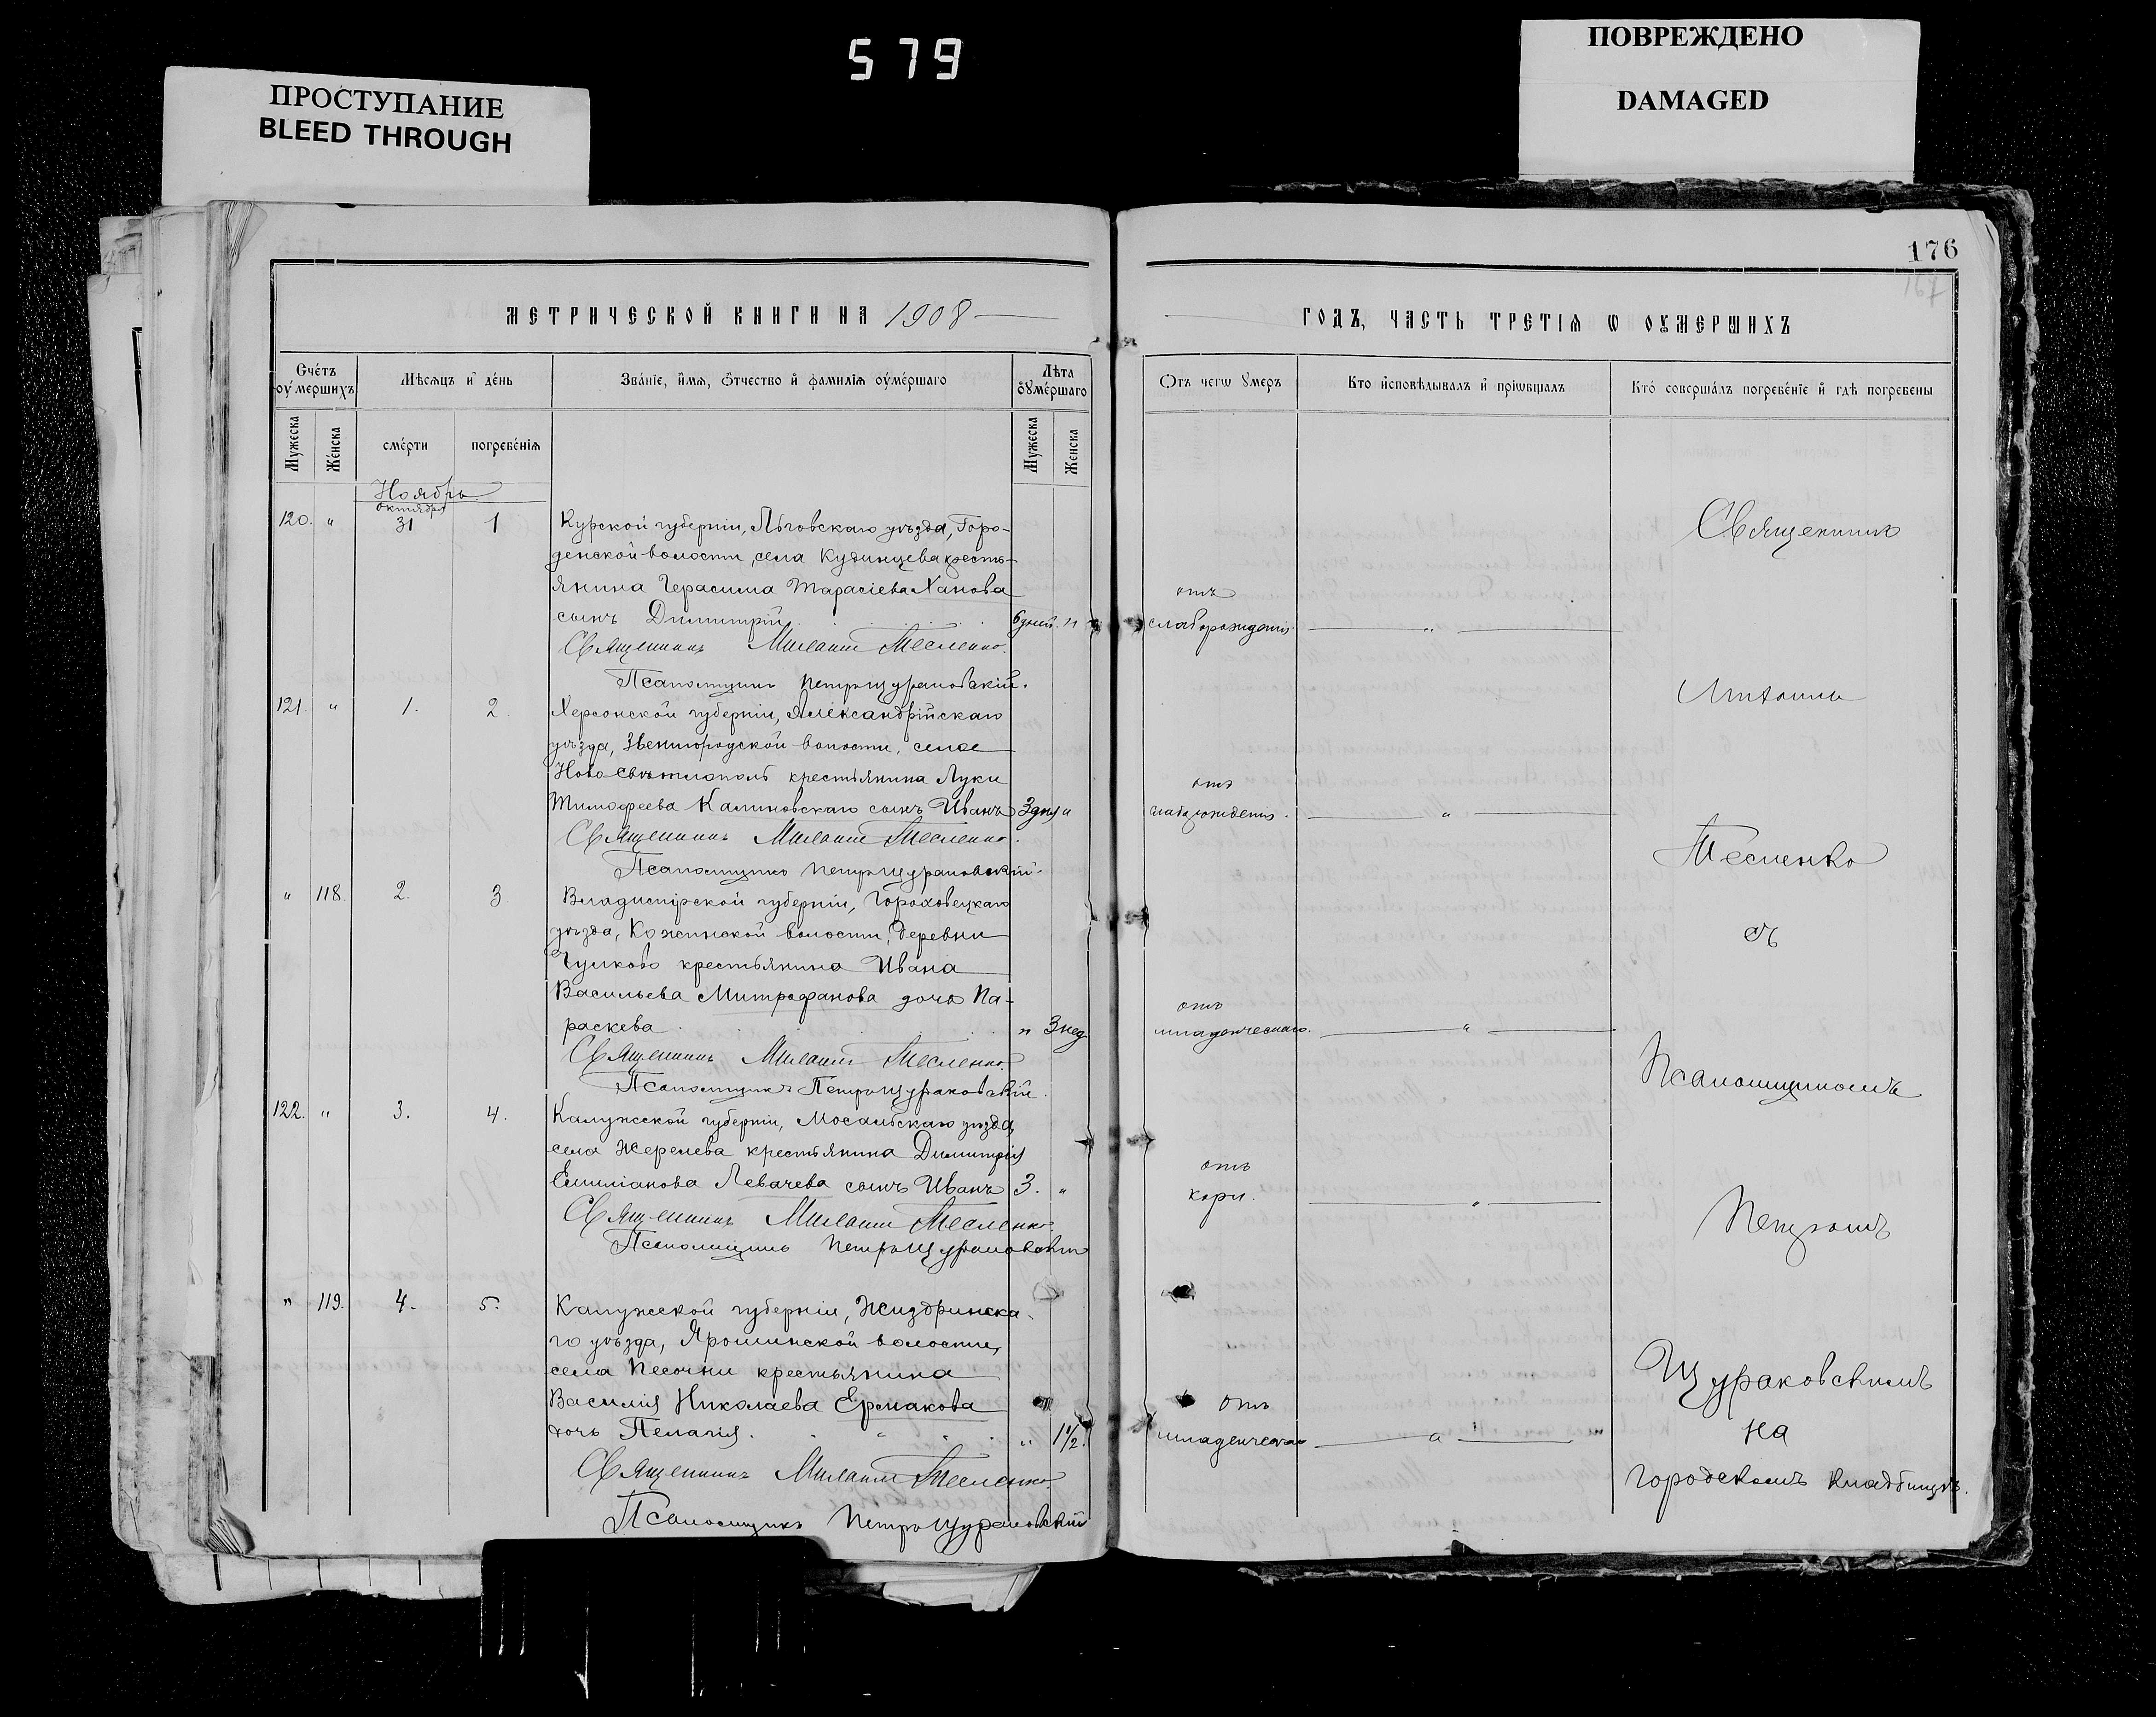 579
ПРОСТУПАНИЕ
BLEED THROUGH
ПОВРЕЖДЕНО
DAMAGED
176
МЕТРИЧЕСКОЙ КНИГИ НА 1908
ГОДЪ, ЧАСТЬ ТРЕТІѦ Ѡ ОУМЕРШИХЪ
Счётъ оумершихъ
Мѣсѧцъ и день
Званіе, имѧ, ѿчество и фамиліѧ оумершаго
Лѣта оумершаго
Отъ чегѡ умеръ
Кто исповѣдывалъ и пріѡбщалъ
Кто совершалъ погребеніе и гдѣ погребены
Мужеска
Женска
смерти
погребеніѧ
Мужеска
Женска
Ноябрь
октября
120. " 31 1 Курской губерніи, Льговскаго уѣзда, Горо-
денской волости, села Кудинцева кресть-
янина Герасима Тарасіева Ханова
сынъ Димитрій 6 дней. "
отъ
слаборожденія "
Священникъ Тесленко.
Псаломщикъ Петръ Щураковскій.
121. " 1. 2. Херсонской губерніи, Александрійскаго
уѣзда, Звенигородской волости, село
Ново Свѣтлополь крестьянина Луки
Тимофеева Калиновскаго сынъ Иванъ 3 дня "
отъ
слаборожденія. "
Священникъ Тесленко.
Псаломщикъ Петръ Щураковскій.
" 118. 2. 3. Владимірской губерніи, Гороховецкаго
уѣзда, Кожинской волости, деревни
Чулково крестьянина Ивана
Васильева Митрофанова дочь Па-
раскева " 3 нед
отъ
младенческаго. "
Священникъ Тесленко.
Псаломщикъ Петръ Щураковскій.
122. " 3. 4. Калужской губерніи, Мосальскаго уѣзда,
села Жерелева крестьянина Димитрія
Емиліанова Левачева сынъ Иванъ 3. "
отъ
кори. "
Священникъ Тесленко.
Псаломщикъ Петръ Щураковскій
" 119. 4. 5. Калужской губерніи, Жиздринска-
го уѣзда, Ярошинской волости,
села Песочни крестьянина
Василія Николаева Ермакова
дочь Пелагія. " 1 1/2.
отъ
младенческаго "
Священникъ Тесленко.
Псаломщикъ Петръ Щураковскій
Священникъ
Тесленко
съ
Псаломщикомъ
Петромъ
Щураковскимъ
на
городскомъ кладбищѣ.